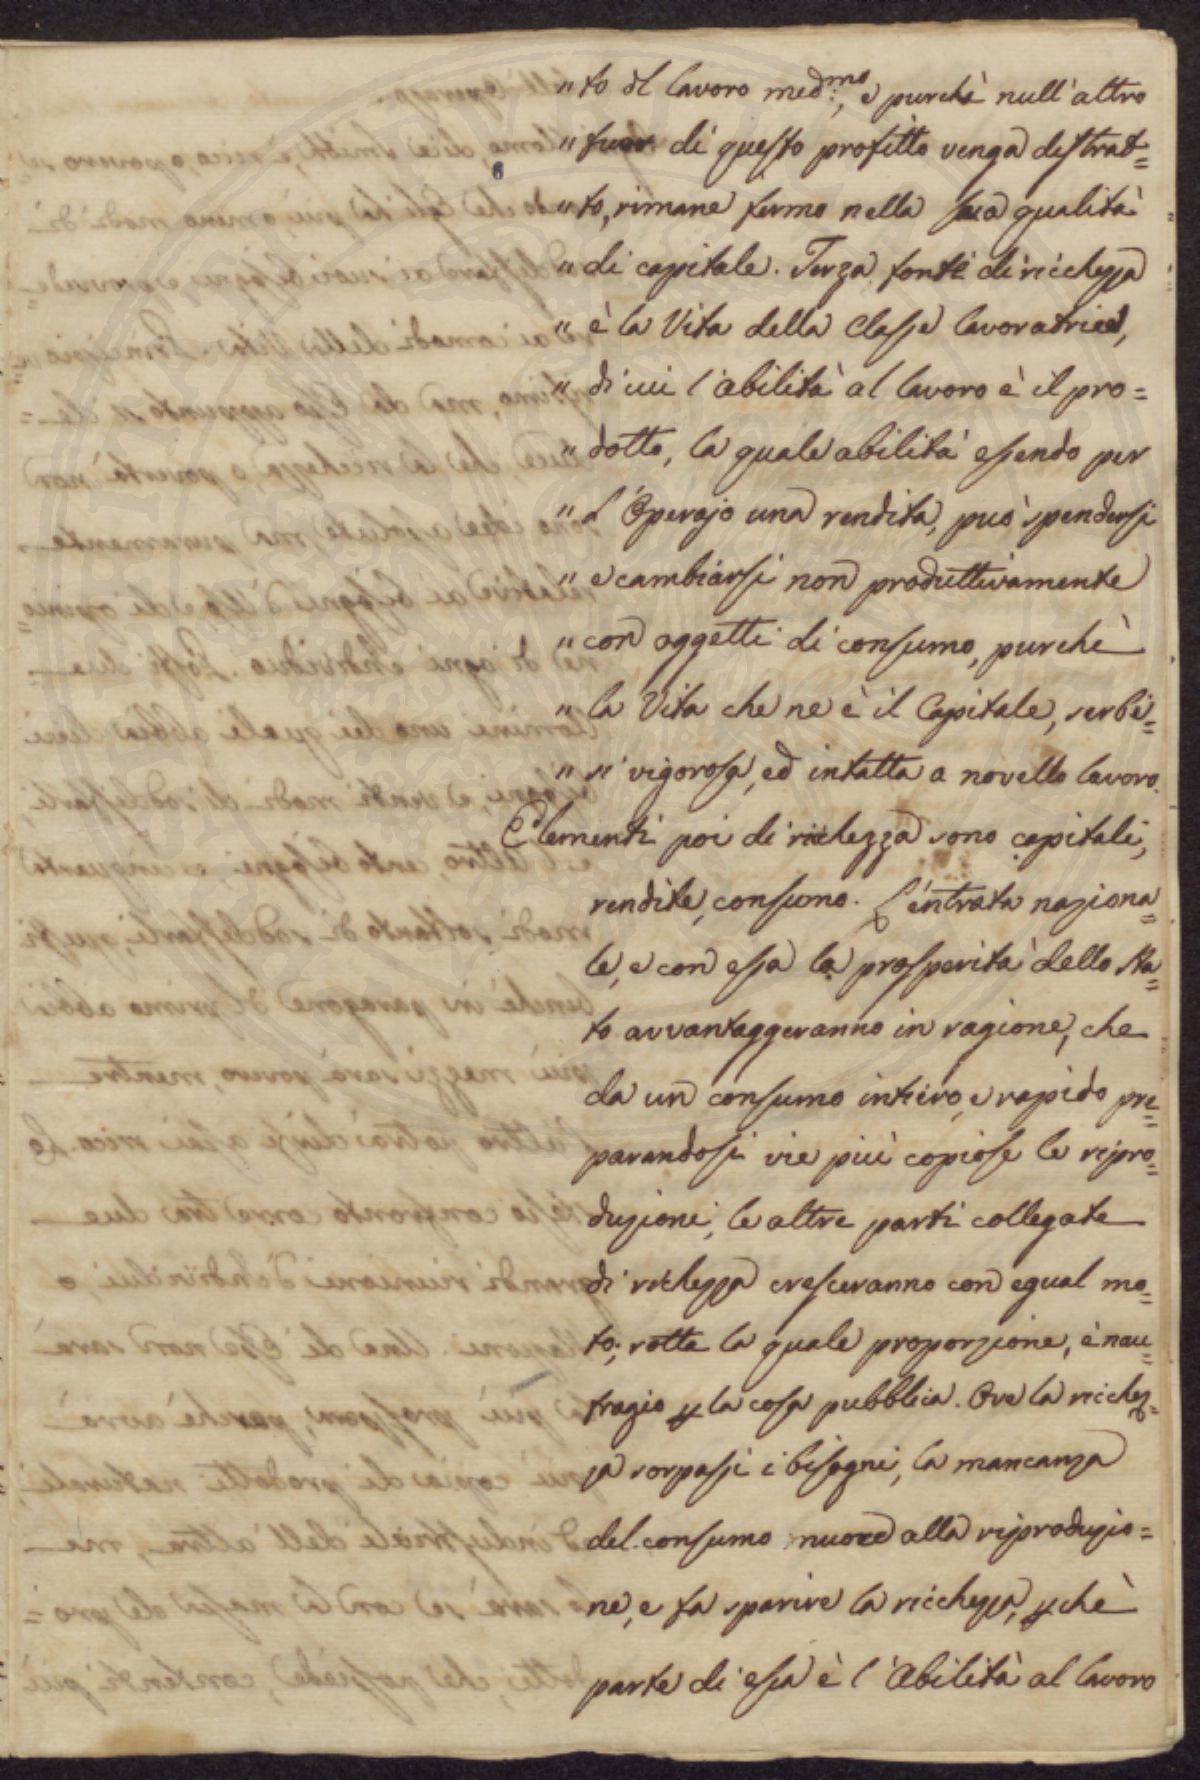 " to del lavoro med.mo, e purchè null'altro
" fuor di questo profitto venga distrat=
" to, rimane fermo nella sua qualità
" di capitale. Terza fonte di ricchezza
" è la Vita della Classe lavoratrice,
" di cui l'abilità al lavoro è il pro=
" dotto, la quale abilità essendo per
" l'Operajo una rendita, può spendersi
" e cambiarsi non produttivamente
" con oggetti di consumo, purchè
" la Vita che ne è il Capitale, serbi=
" si vigorosa, ed intatta a novello lavoro.
Elementi poi di richezza sono capitali,
rendite, consumo. L'entrata naziona=
le, e con essa la prosperità dello Sta=
to avvantaggeranno in ragione, che
da un consumo intiero, e rapido pre=
parandosi vie più copiose le ripro=
duzioni, le altre parti collegate
di richezza cresceranno con egual mo=
to; rotta la quale proporzione, è nau=
fragio p la cosa pubblica. Ove la ricchez=
za sorpassi i bisogni, la mancanza
del consumo nuoce alla riproduzio=
ne, e fa sparire la ricchezza, pchè
parte di essa è l'Abilità al lavoro